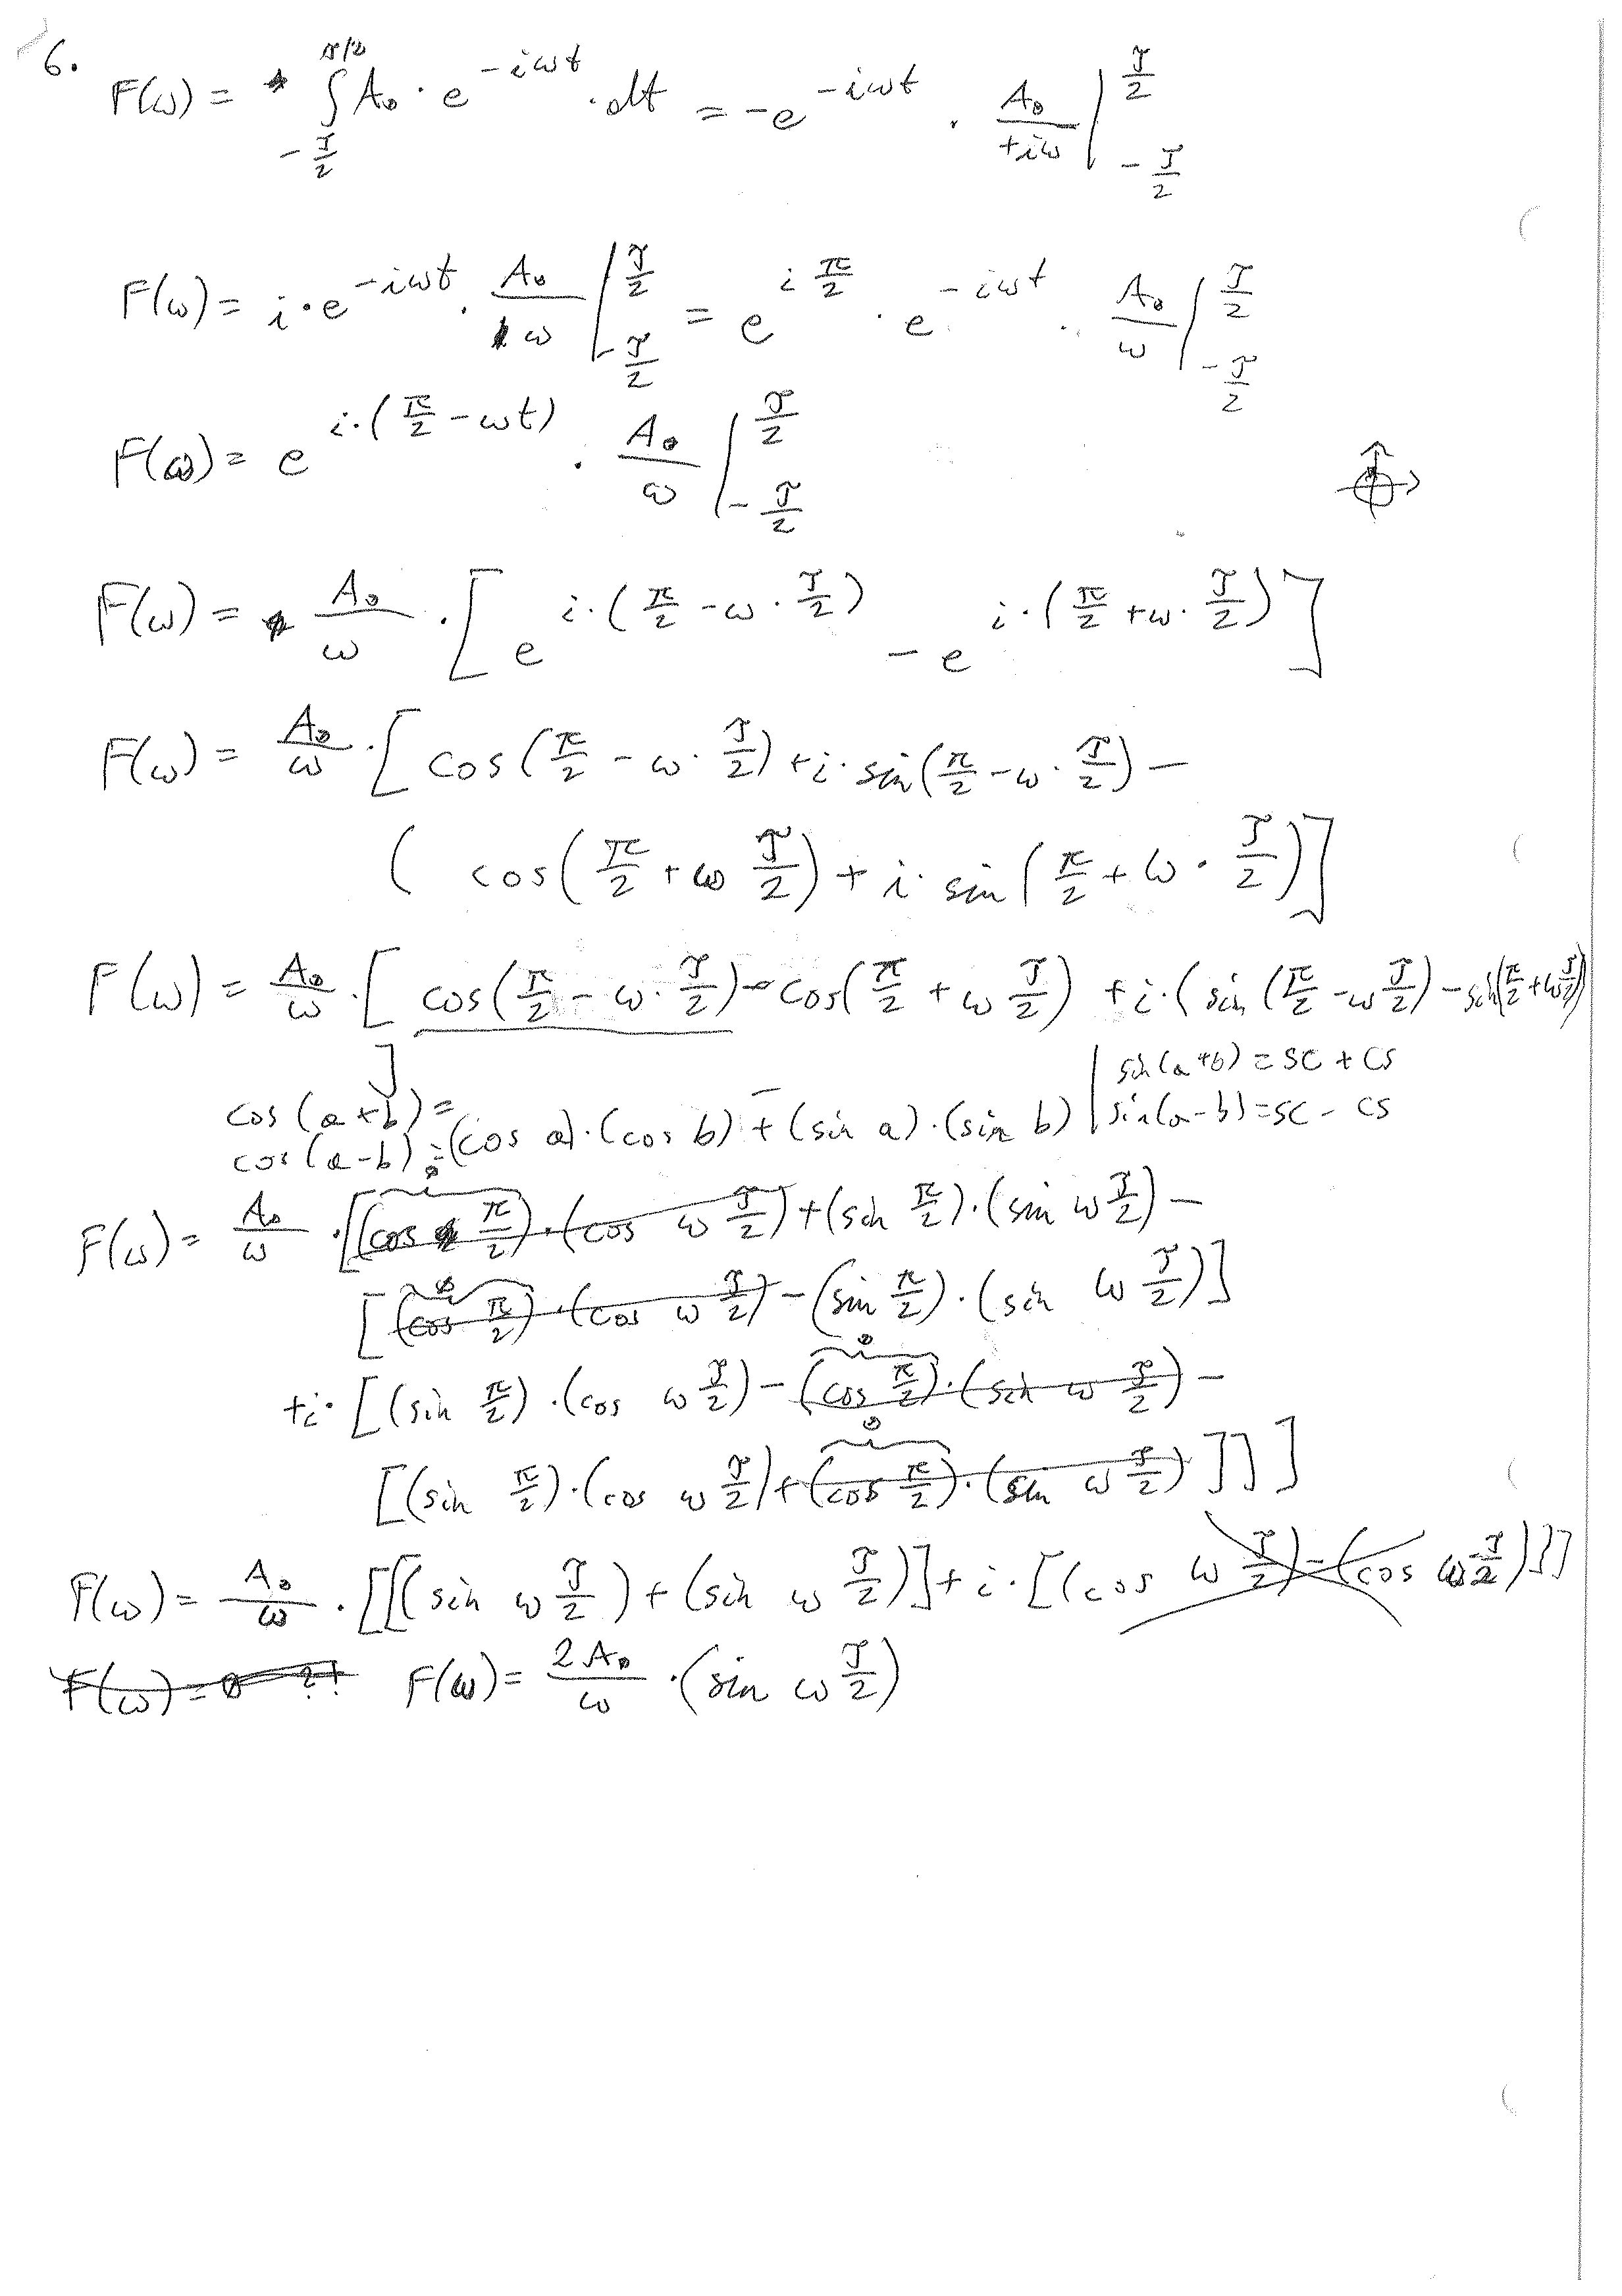 6.
F(ω) = ∫_{-T/2}^{T/2} A₀ · e^{-iωt} · dt = -e^{-iωt} · A₀/(+iω) |_{-T/2}^{T/2}
F(ω) = i · e^{-iωt} · A₀/ω |_{-T/2}^{T/2} = e^{i π/2} · e^{-iωt} · A₀/ω |_{-T/2}^{T/2}
F(ω) = e^{i·(π/2 - ωt)} · A₀/ω |_{-T/2}^{T/2}
F(ω) = A₀/ω · [e^{i·(π/2 - ω·T/2)} - e^{i·(π/2 + ω·T/2)}]
F(ω) = A₀/ω · [cos(π/2 - ω·T/2) + i·sin(π/2 - ω·T/2) -
(cos(π/2 + ω T/2) + i·sin(π/2 + ω·T/2)]
F(ω) = A₀/ω · [cos(π/2 - ω·T/2) - cos(π/2 + ω T/2) + i·(sin(π/2 - ω T/2) - sin(π/2 + ω T/2)
]
cos(a+b) =
cos(a-b) = (cos a)·(cos b) ∓ (sin a)·(sin b) | sin(a+b) = sc + cs
sin(a-b) = sc - cs
F(ω) = A₀/ω · [(cos π/2)·(cos ω T/2) + (sin π/2)·(sin ω T/2) -
[(cos π/2)·(cos ω T/2) - (sin π/2)·(sin ω T/2)]
+i·[(sin π/2)·(cos ω T/2) - (cos π/2)·(sin ω T/2) -
[(sin π/2)·(cos ω T/2) + (cos π/2)·(sin ω T/2)]]]
F(ω) = A₀/ω · [[(sin ω T/2) + (sin ω T/2)] + i·[(cos ω T/2) - (cos ω T/2)]]
F(ω) = 0 ?! F(ω) = 2A₀/ω · (sin ω T/2)